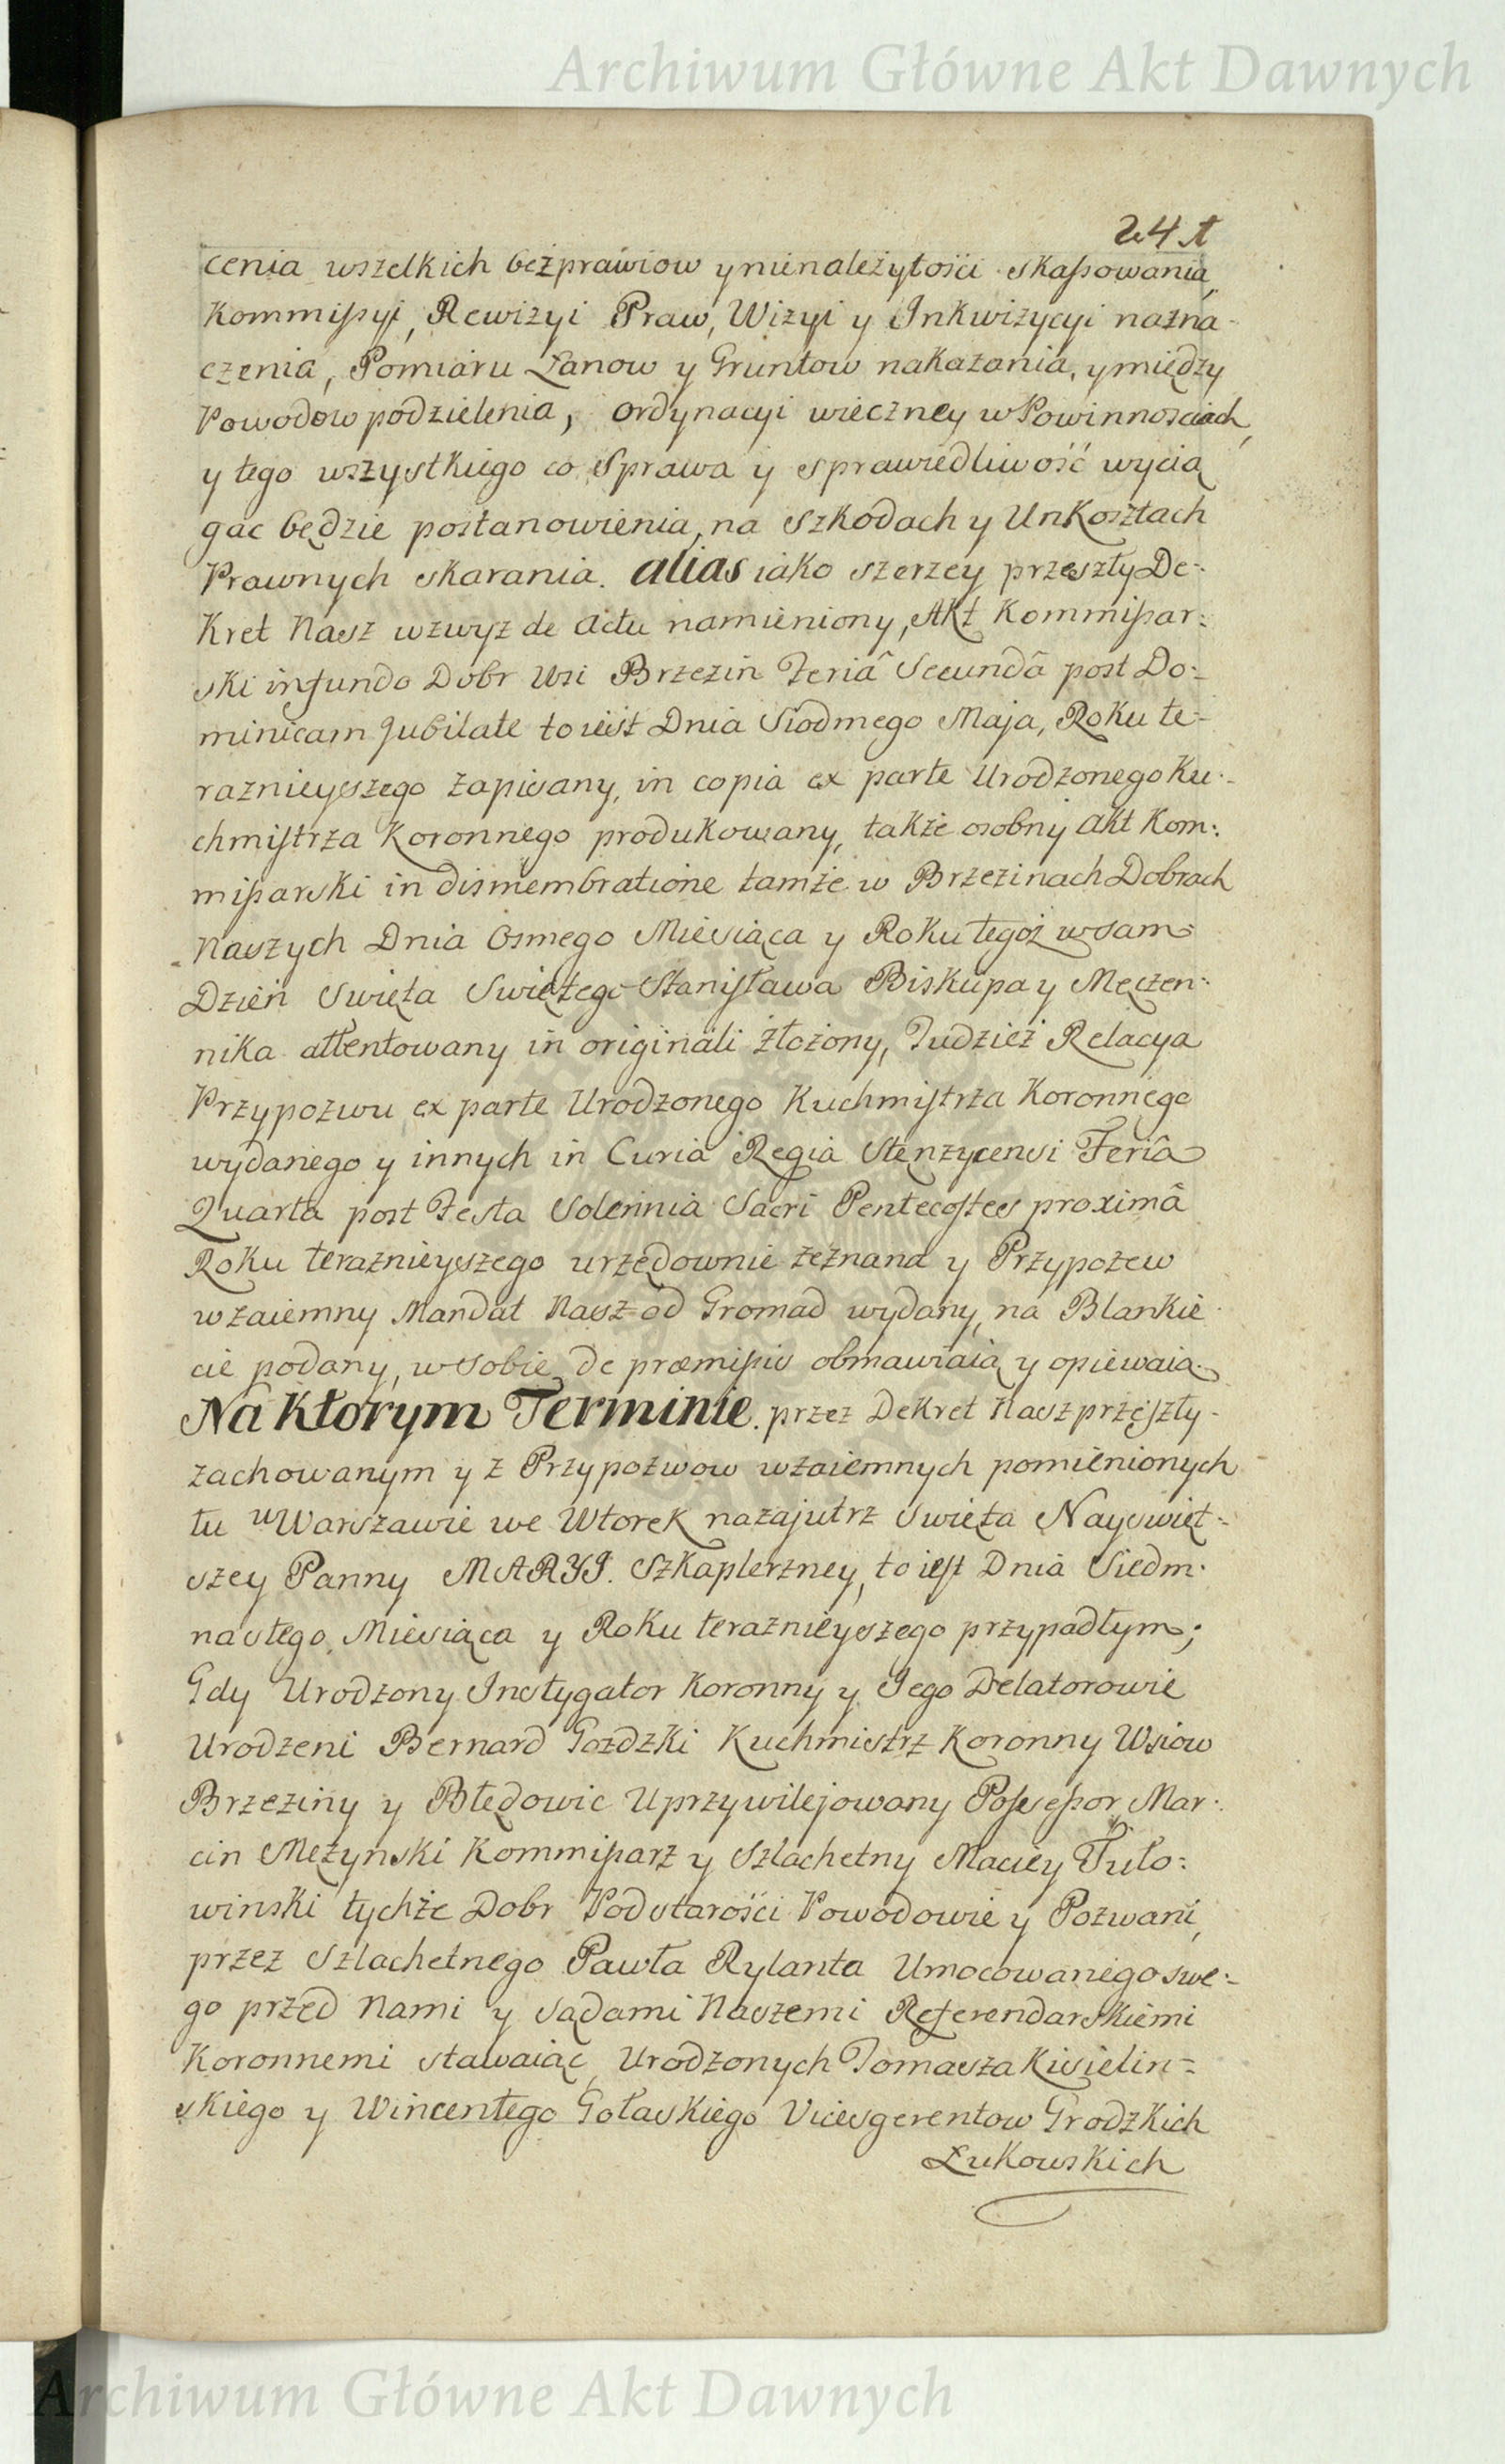 Archiwum Główne Akt Dawnych
241
cenia wszelkich bezprawiow y nienależytości skassowania,
Kommissyi, Rewizyi Praw, Wizyi y Inkwizycyi nazna-
czenia, Pomiaru Łanow y Gruntow nakazania, y między
Powodow podzielenia, ordynacyi wieczney w Powinnosciach,
y tego wszystkiego co Sprawa y sprawiedliwość wycią
gac będzie postanowienia, na Szkodach y Unkosztach
Prawnych skarania. alias iako szerzey przeszły De-
kret Nasz wzwyz de actu namieniony, Akt Kommissar:
ski in fundo Dobr Wsi Brzezin Feriâ Secundâ post Do:
minicam Jubilate to iest Dnia Siodmego Maja, Roku te-
raznieyszego zapisany, in copia ex parte Urodzonego Ku:
chmistrza Koronnego produkowany, także osobny akt Kom:
missarski in dismembratione tamże w Brzezinach Dobrach
Naszych Dnia Osmego Miesiąca y Roku tegoż w sam
Dzień Swięta Swiętego Stanisława Biskupa y Męczen:
nika attentowany in originali złożony, Tudzież Relacya
Przypozwu ex parte Urodzonego Kuchmistrza Koronnego
wydanego y innych in Curia Regia Stenzycensi Feriâ
Quarta post Festa Solennia Sacri Pentecostes proximâ
Roku teraznieyszego urzędownie zeznana y Przypozew
wzaiemny Mandat Nasz od Gromad wydany, na Blankie
cie podany, w sobie de præmissis obmawiaią y opiewaią.
Na Ktorym Terminie. przez Dekret Nasz przeszły
zachowanym y z Przypozwow wzaiemnych pomienionych
tu w Warszawie we Wtorek nazajutrz Swięta Nayswięt-
szey Panny MARYI. Szkaplerzney, to iest Dnia Siedm:
nastego Miesiąca y Roku teraznieyszego przypadłym;
Gdy Urodzony Instygator Koronny y Jego Delatorowie
Urodzeni Bernard Gozdzki Kuchmistrz Koronny Wsiow
Brzeziny y Błędowic Uprzywilejowany Possessor, Mar:
cin Mężynski Kommissarz y Szlachetny Maciey Tuło:
winski tychże Dobr Podstarości Powodowie y Pozwani,
przez Szlachetnego Pawła Rylanta Umocowanego swe:
go przed Nami y Sądami Naszemi Referendarskiemi
Koronnemi stawaiąc, Urodzonych Tomasza Kisielin-
skiego y Wincentego Gołaskiego Vicesgerentow Grodzkich
Łukowskich
Archiwum Główne Akt Dawnych